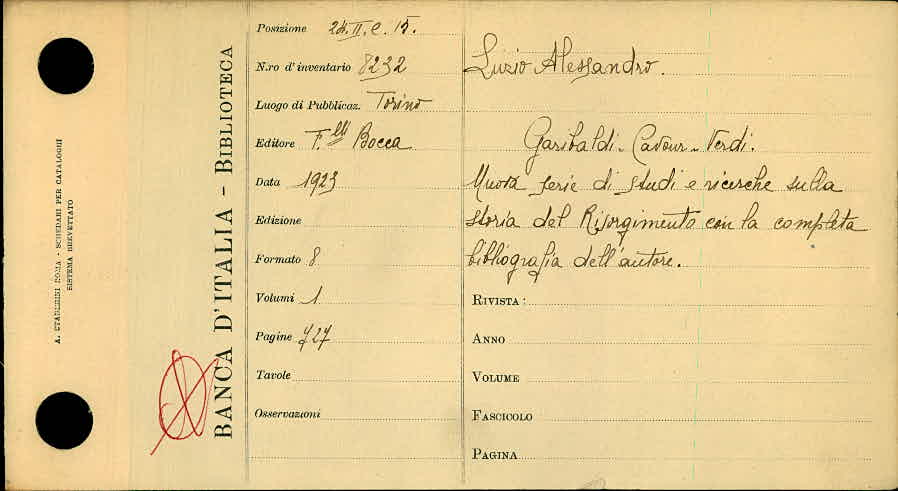 A. STADERINI ROMA - SCHEDARI PER CATALOGHI
SISTEMA BREVETTATO
BANCA D'ITALIA - BIBLIOTECA
Posizione 24.II.C.15.
N.ro d'inventario 8232
Luogo di Pubblicaz. Torino
Editore F.lli Bocca
Data 1923
Edizione
Formato 8
Volumi 1
Pagine 727
Tavole
Osservazioni
Luzio Alessandro.
Garibaldi - Cavour - Verdi.
Nuova serie di studi e ricerche sulla
storia del Risorgimento con la completa
bibliografia dell'autore.
RIVISTA:
ANNO
VOLUME
FASCICOLO
PAGINA